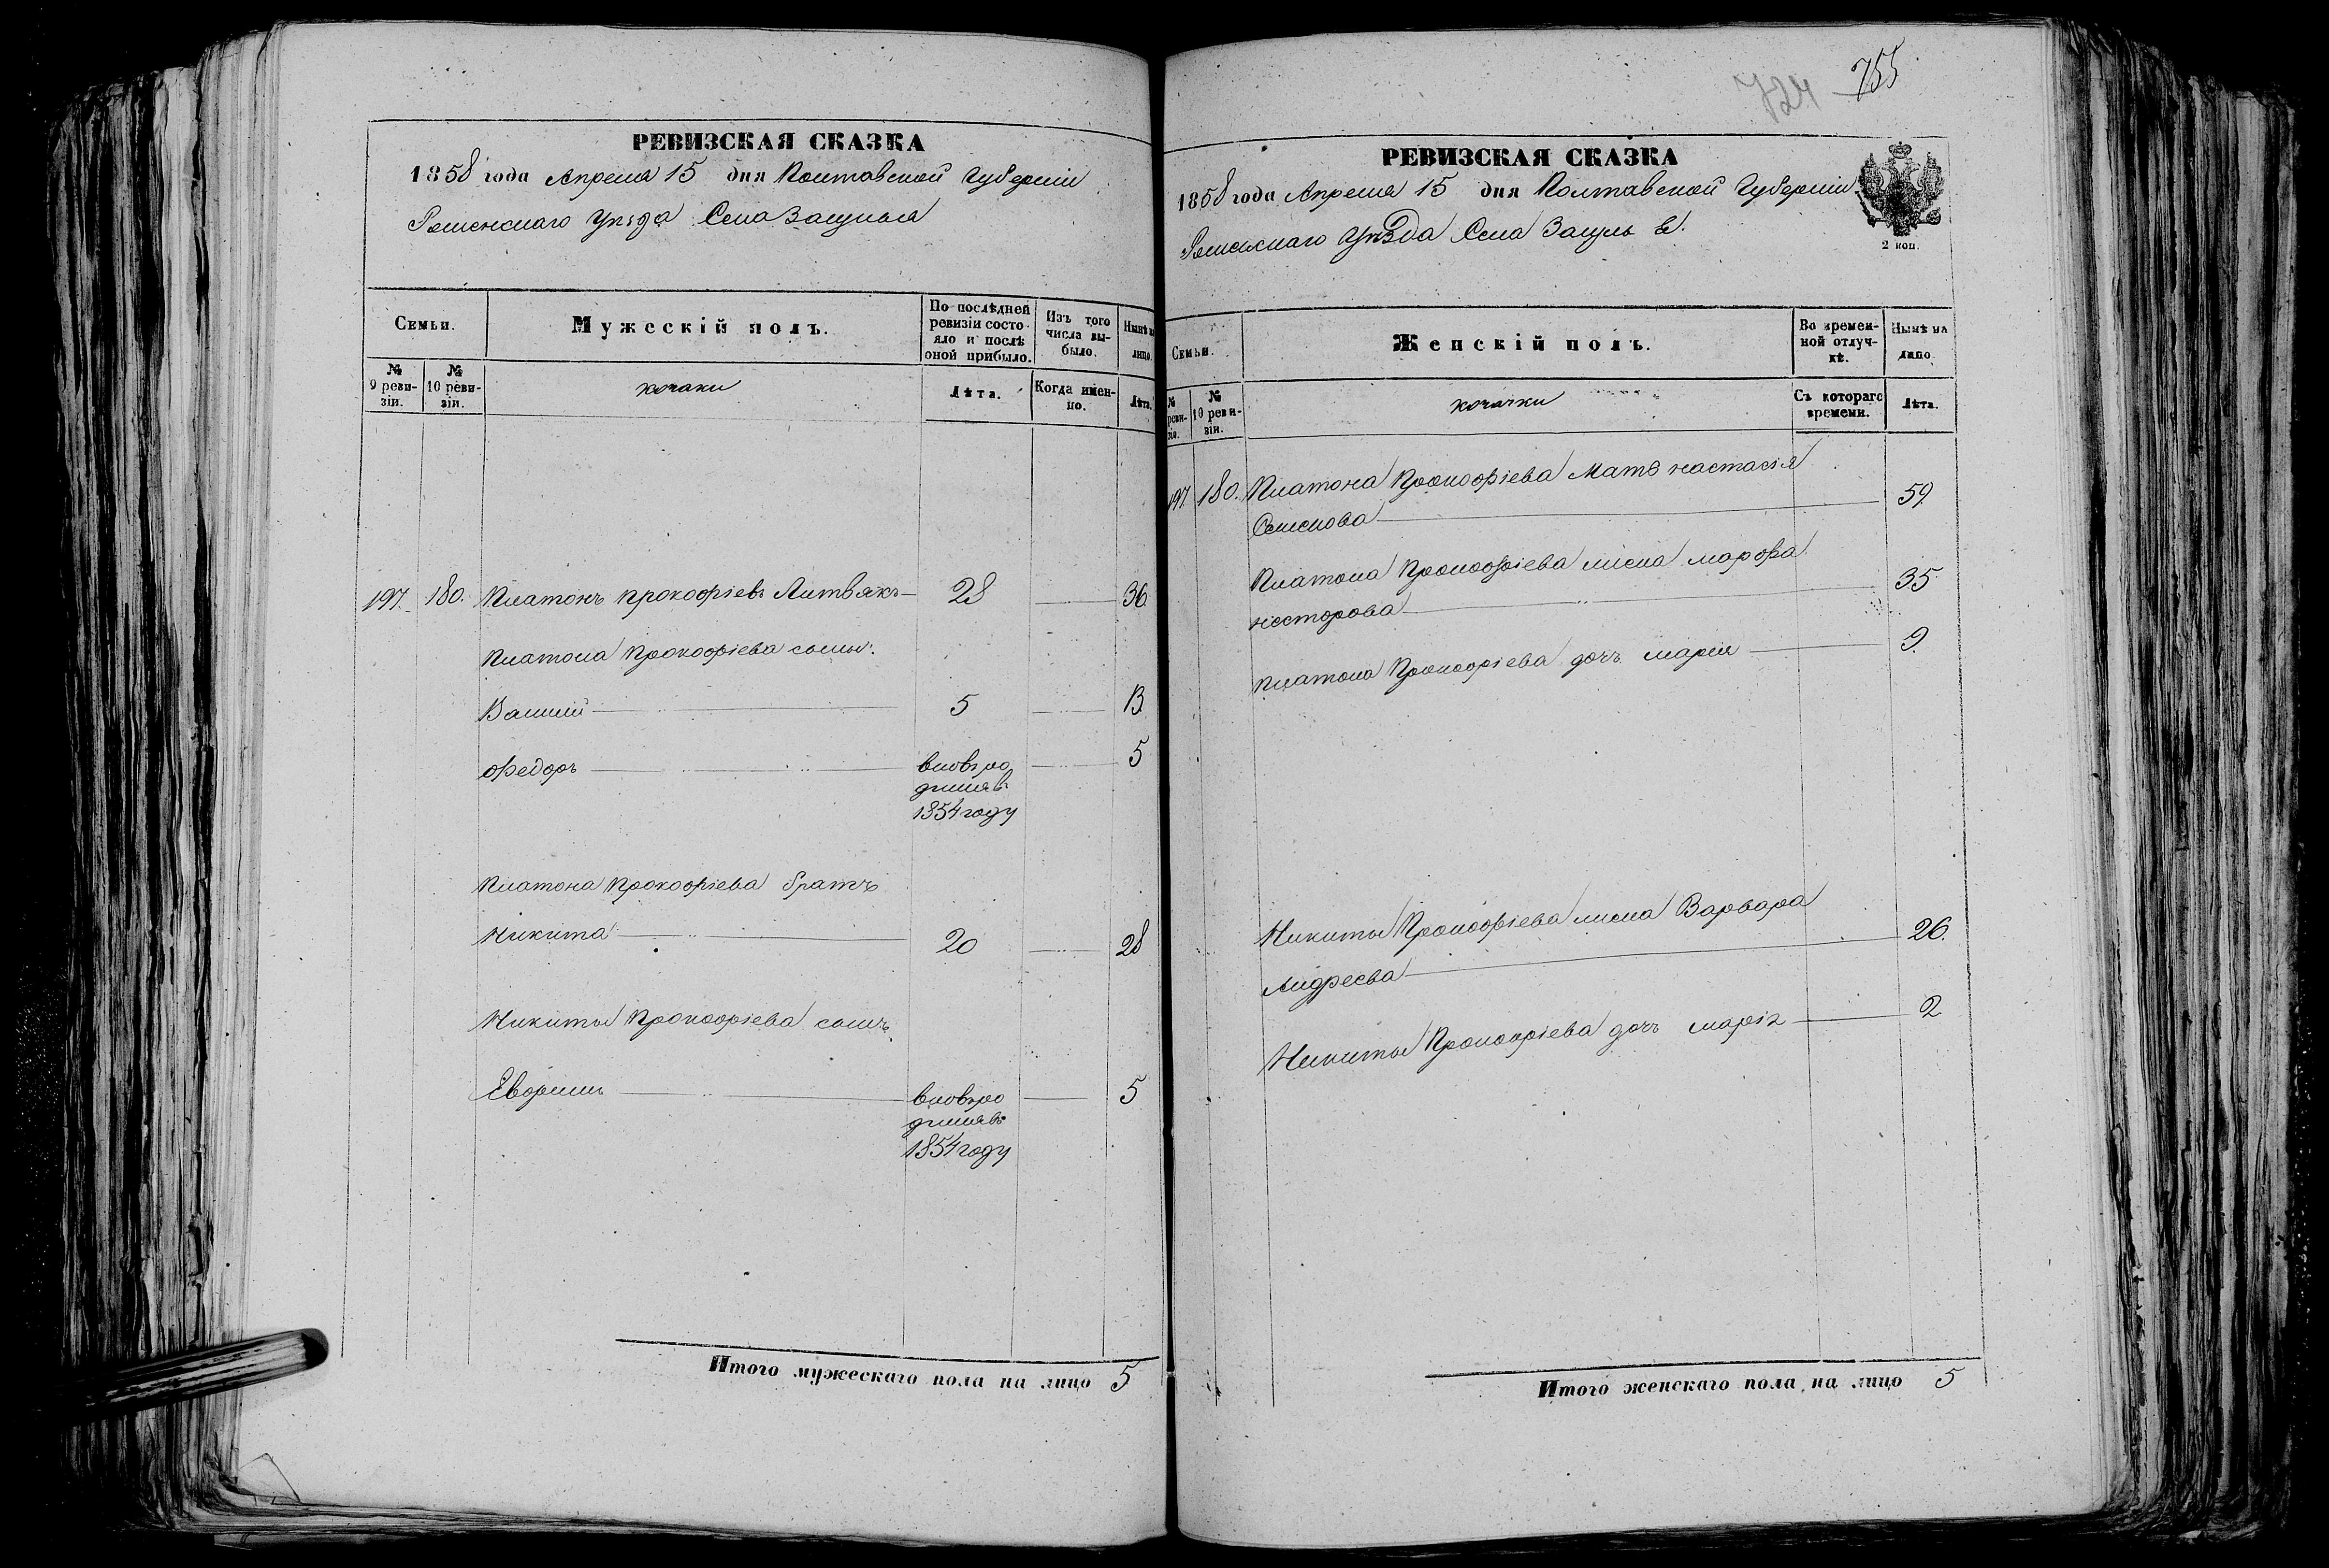 РЕВИЗСКАЯ СКАЗКА
1858 года Апреля 15 дня Полтавской Губернiи
Роменскаго Уѣзда Села Засулья
Семьи.
Мужескiй полъ.
По послѣдней ревизiи состояло и послѣ оной прибыло.
Изъ того числа выбыло.
Нынѣ на лицо.
№ 9 ревизiи.
№ 10 ревизiи.
козаки
Лѣта.
Когда именно.
Лѣта.
197. 180. Платонъ прокофіевъ Литвякъ 28 36
Платона Прокофіева сыны:
Василий 5 13
Федоръ вновь ро 5
дился в
1854 году
Платона Прокофіева братъ
Никита 20 28
Никиты Прокофіева сынъ
Евфимъ вновь ро 5
дился въ
1854 году
Итого мужескаго пола на лицо 5
724 755
РЕВИЗСКАЯ СКАЗКА
1858 года Апреля 15 дня Полтавской Губерніи
Роменскаго Уѣзда Села Засулье.
2 коп.
Семьи.
Женскiй полъ.
Во временной отлучкѣ.
Нынѣ на лицо.
№ ревизiи.
№ 10 ревизiи.
козачки
Съ котораго времени.
Лѣта.
197. 180. Платона Прокофіева мать настасія
Семенова 59
Платона Прокофіева жена марфа
несторова 35
платона Прокофіева дочь марія 9
Никиты Прокофіева жена Варвара
Андреева 26.
Никиты Прокофіева дочь марія 2
Итого женскаго пола на лицо 5